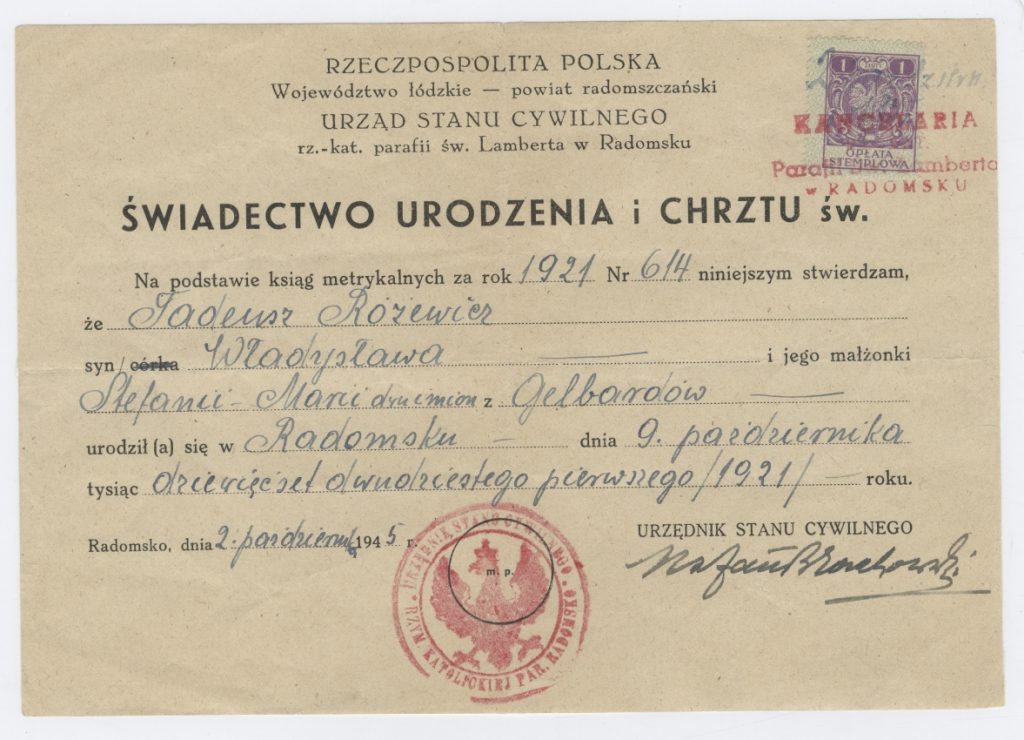 RZECZPOSPOLITA POLSKA
Województwo łódzkie — powiat radomszczański
URZĄD STANU CYWILNEGO
rz.-kat. parafii św. Lamberta w Radomsku
1 ZŁOTY 1
OPŁATA
STEMPLOWA
KANCELARIA
Parafii Lamberta
w RADOMSKU
ŚWIADECTWO URODZENIA i CHRZTU św.
Na podstawie ksiąg metrykalnych za rok 1921 Nr 614 niniejszym stwierdzam,
że Tadeusz Różewicz
syn/córka Władysława — i jego małżonki
Stefanii - Marii dwu imion z Gelbardów —
urodził (a) się w Radomsku — dnia 9. października
tysiąc dziewięćset dwudziestego pierwszego /1921/ — roku.
Radomsko, dnia 2. październ. 1945 r.
URZĘDNIK STANU CYWILNEGO
m. p.
URZĘDNIK STANU CYWILNEGO
RZYM. KATOLICKIEJ PAR. RADOMSKO